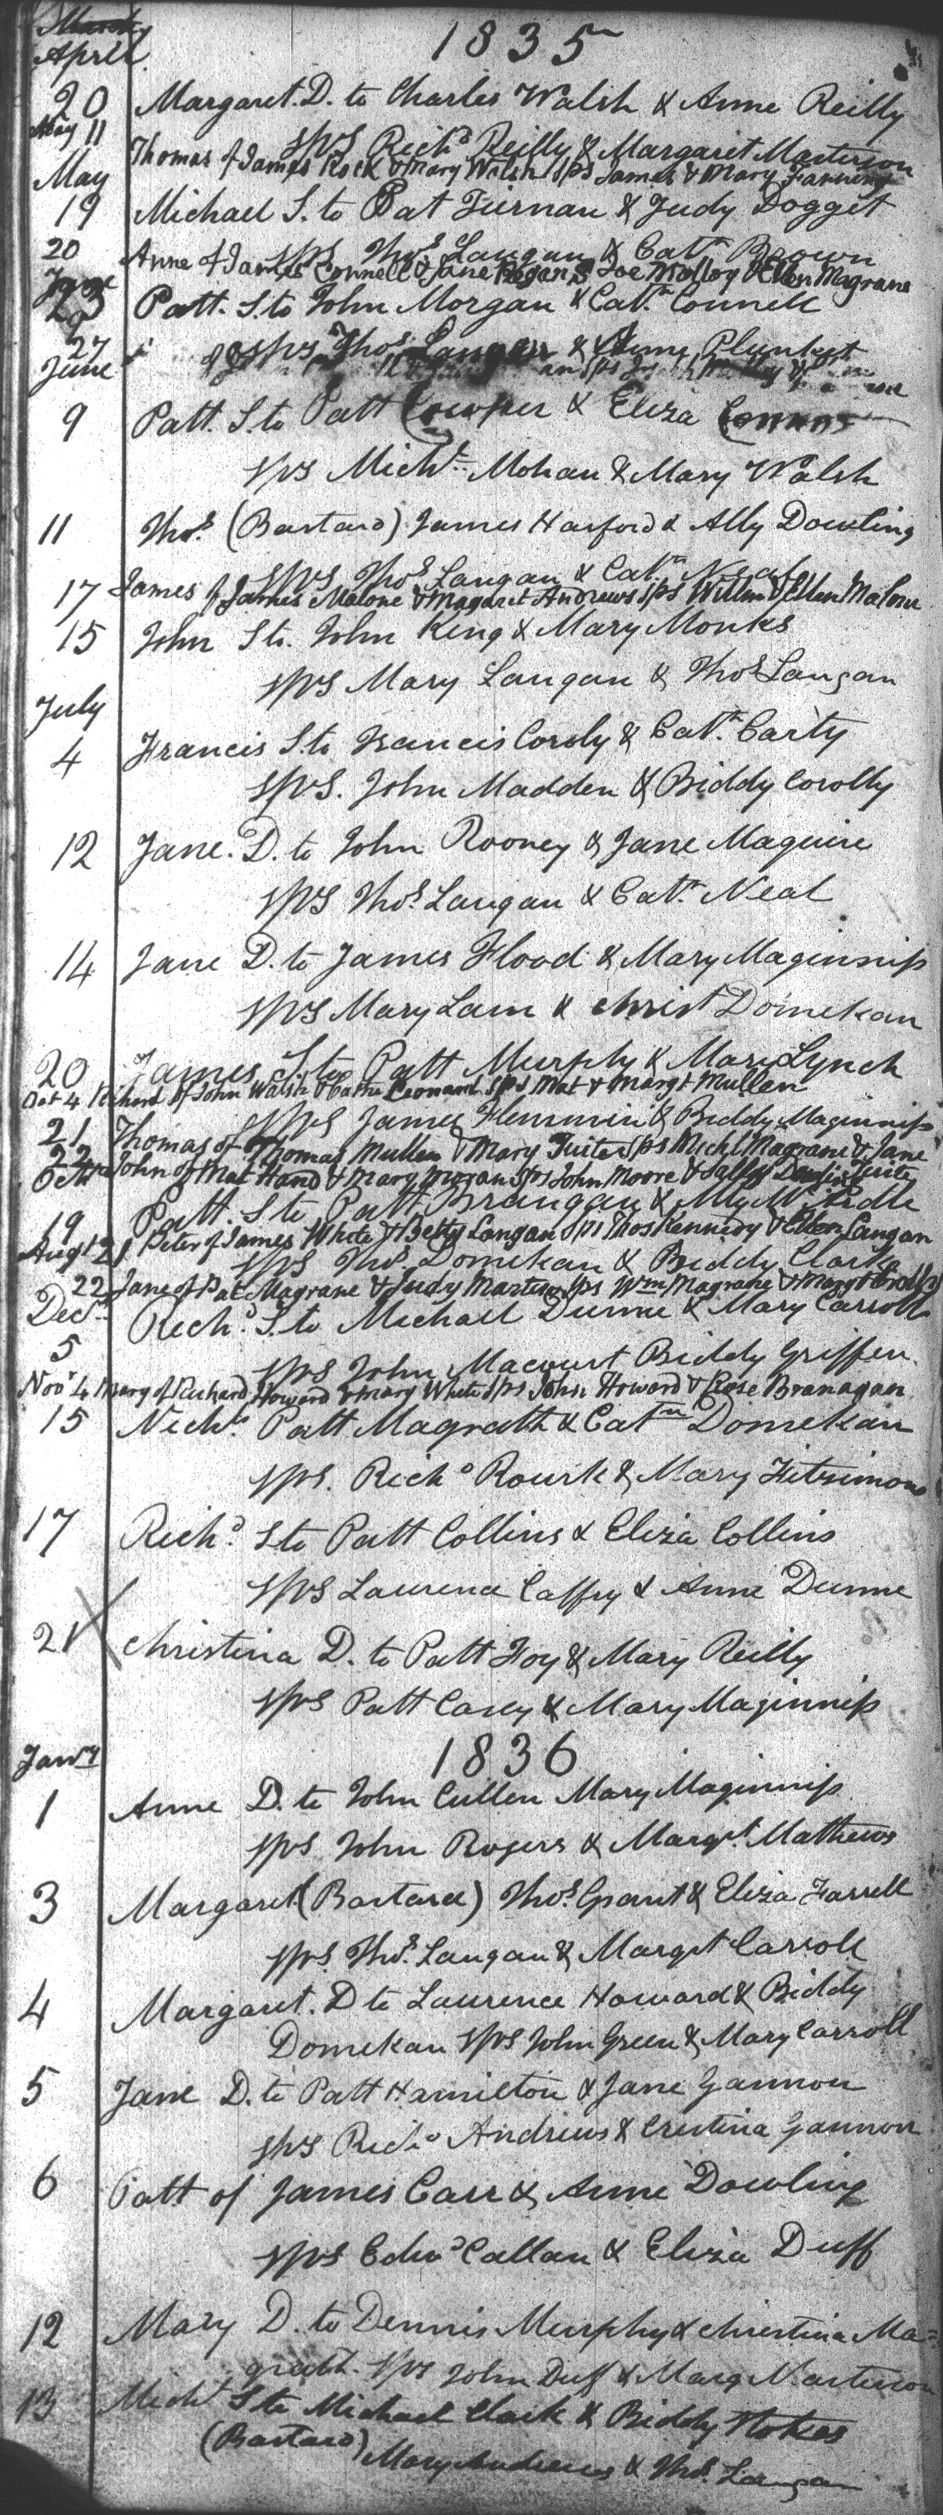 April
1835
20 Margaret. D. to Charles Walsh & Anne Reilly
sps Richd Reilly & Margaret Masterson
May 11 Thomas of James Rock & Mary Walsh Sps James & Mary Fanning
May
19 Michael S. to Pat Tiernan & Judy Dogget
sps Thos Langan & Cath Brown
20 Anne of James Connell & Jane Regan S Joe Molloy & Ellen Magrane
June
23 Patt. S. to John Morgan & Cath Connell
sps Thos Langan & Anne Plunket
27
June
9 Patt. S. to Patt Cowper & Eliza
sps Michl Mohan & Mary Walsh
11 Thos (Bastard) James Harford & Ally Dowling
sps Thos Langan & Cath Neal
17 James of James Malone & Magaret Andrews Sps Willm & Ellen Malone
15 John S to. John King & Mary Monks
sps Mary Langan & Thos Langan
July
4 Francis S. to Francis Coroly & Cath. Carty
sps. John Madden & Biddy Corolly
12 Jane. D. to John Rooney & Jane Maguire
sps Thos Langan & Cath. Neal
14 Jane D. to James Flood & Mary Maginniss
sps Mary Lam & Christ Domekan
20 James S. to Patt Murphy & Mary Lynch
Oct 4 Richard of John Walsh & Cathe Leonard Sps Mat & Margt Mullen
sps James Flemming & Biddy Maginniss
21 Thomas of Thomas Mullen & Mary Tuite Sps Michl Magrane & Jane Tuite
22 John of Mat Hand & Mary Moran Sps John Moore & Sally
Octr
19 Patt. S to Patt Brangan & Ally
Augt 21 Peter of James White & Betty Langan Sps Thos Kennedy & Ellen Langan
sps Thos Domekan & Biddy Clark
22 Jane of Pat Magrane & Judy Martin Sps Wm Magrane & Margt
Decr
5 Richd. S. to Michael Dunne & Mary Carroll
sps John Macourt Biddy Griffen.
Novr 4 Mary of Richard Howard & Mary White Sps John Howard & Rose Branagan
15 Nichs Patt Magrath & Cath Domekan
sps. Richd Rourk & Mary Fitsimons
17 Richd S to Patt Collins & Eliza Collins
sps Laurence Caffry & Anne Dunne
21 Christina D. to Patt Foy & Mary Reilly
sps Patt Casey & Mary Maginniss
Jany
1836
1 Anne D. to John Cullen Mary Maginniss
sps John Rogers & Margt. Mathews
3 Margaret (Bastard) Thos Grant & Eliza Farrell
sps. Thos. Langan & Margt Carroll
4 Margaret. D to Laurence Howard & Biddy
Domekan sps John Green & Mary Carroll
5 Jane D. to Patt Hamilton & Jane Gannon
sps Richd Andrews & Cristina Gannon
6 Patt of James Carr & Anne Dowling
sps Edwd Callan & Eliza Duff
12 Mary D. to Dennis Murphy & Christina Ma=
grath. sps John Duff & Marg Masterson
13 Michl S to Michael Clark & Biddy Stokes
(Bastard) Mary Andrews & Thos. Langan